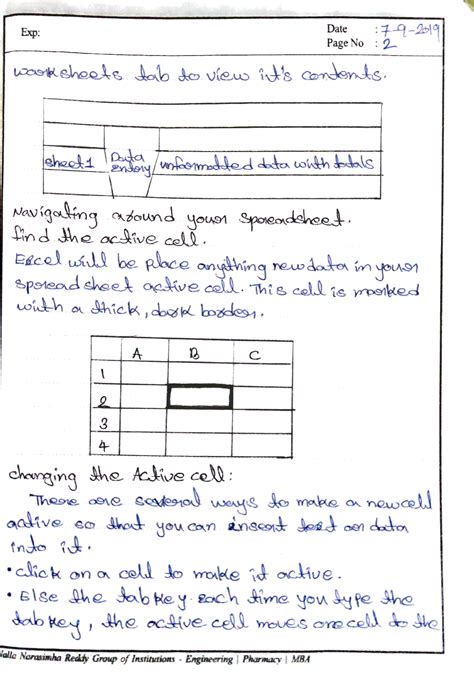 Exp:
Date : 7-9-2019
Page No : 2
worksheets tab to view it's contents.
sheet1 Data entry unformatted data with totals
Navigating around your spreadsheet.
find the active cell.
Excel will be place anything new data in your
spreadsheet active cell. This cell is marked
with a thick, dark border.
A B C
1
2
3
4
changing the Active cell:
There are several ways to make a new cell
active so that you can insert text or data
into it.
• click on a cell to make it active.
• Else the tab key. each time you type the
tab key, the active cell moves one cell to the
Nalla Narasimha Reddy Group of Institutions - Engineering | Pharmacy | MBA